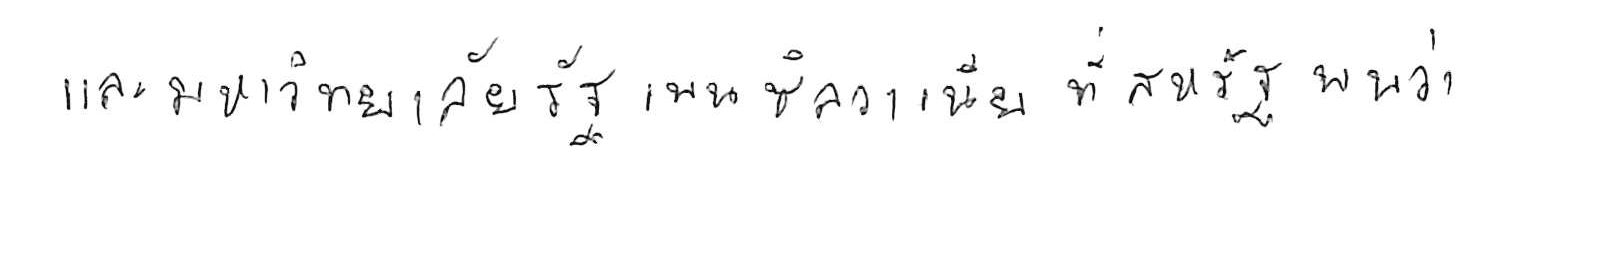 และมหาวิทยาลัยรัฐเพนซิลวาเนีย ที่สหรัฐ พบว่า